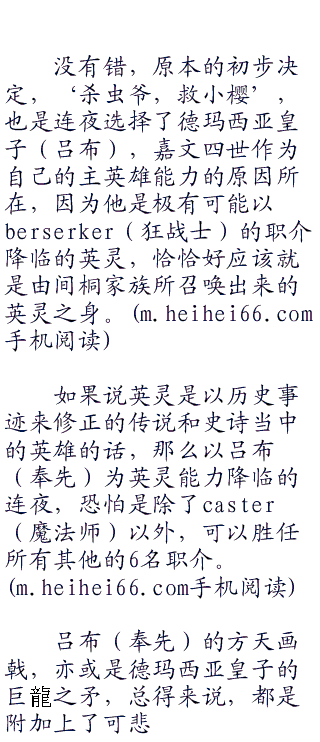 没有错，原本的初步决
定，‘杀虫爷，救小樱’，
也是连夜选择了德玛西亚皇
子（吕布），嘉文四世作为
自己的主英雄能力的原因所
在，因为他是极有可能以
berserker（狂战士）的职介
降临的英灵，恰恰好应该就
是由间桐家族所召唤出来的
英灵之身。(m.heihei66.com
手机阅读)
如果说英灵是以历史事
迹来修正的传说和史诗当中
的英雄的话，那么以吕布
（奉先）为英灵能力降临的
连夜，恐怕是除了caster
（魔法师）以外，可以胜任
所有其他的6名职介。
(m.heihei66.com手机阅读)
吕布（奉先）的方天画
戟，亦或是德玛西亚皇子的
巨龍之矛，总得来说，都是
附加上了可悲